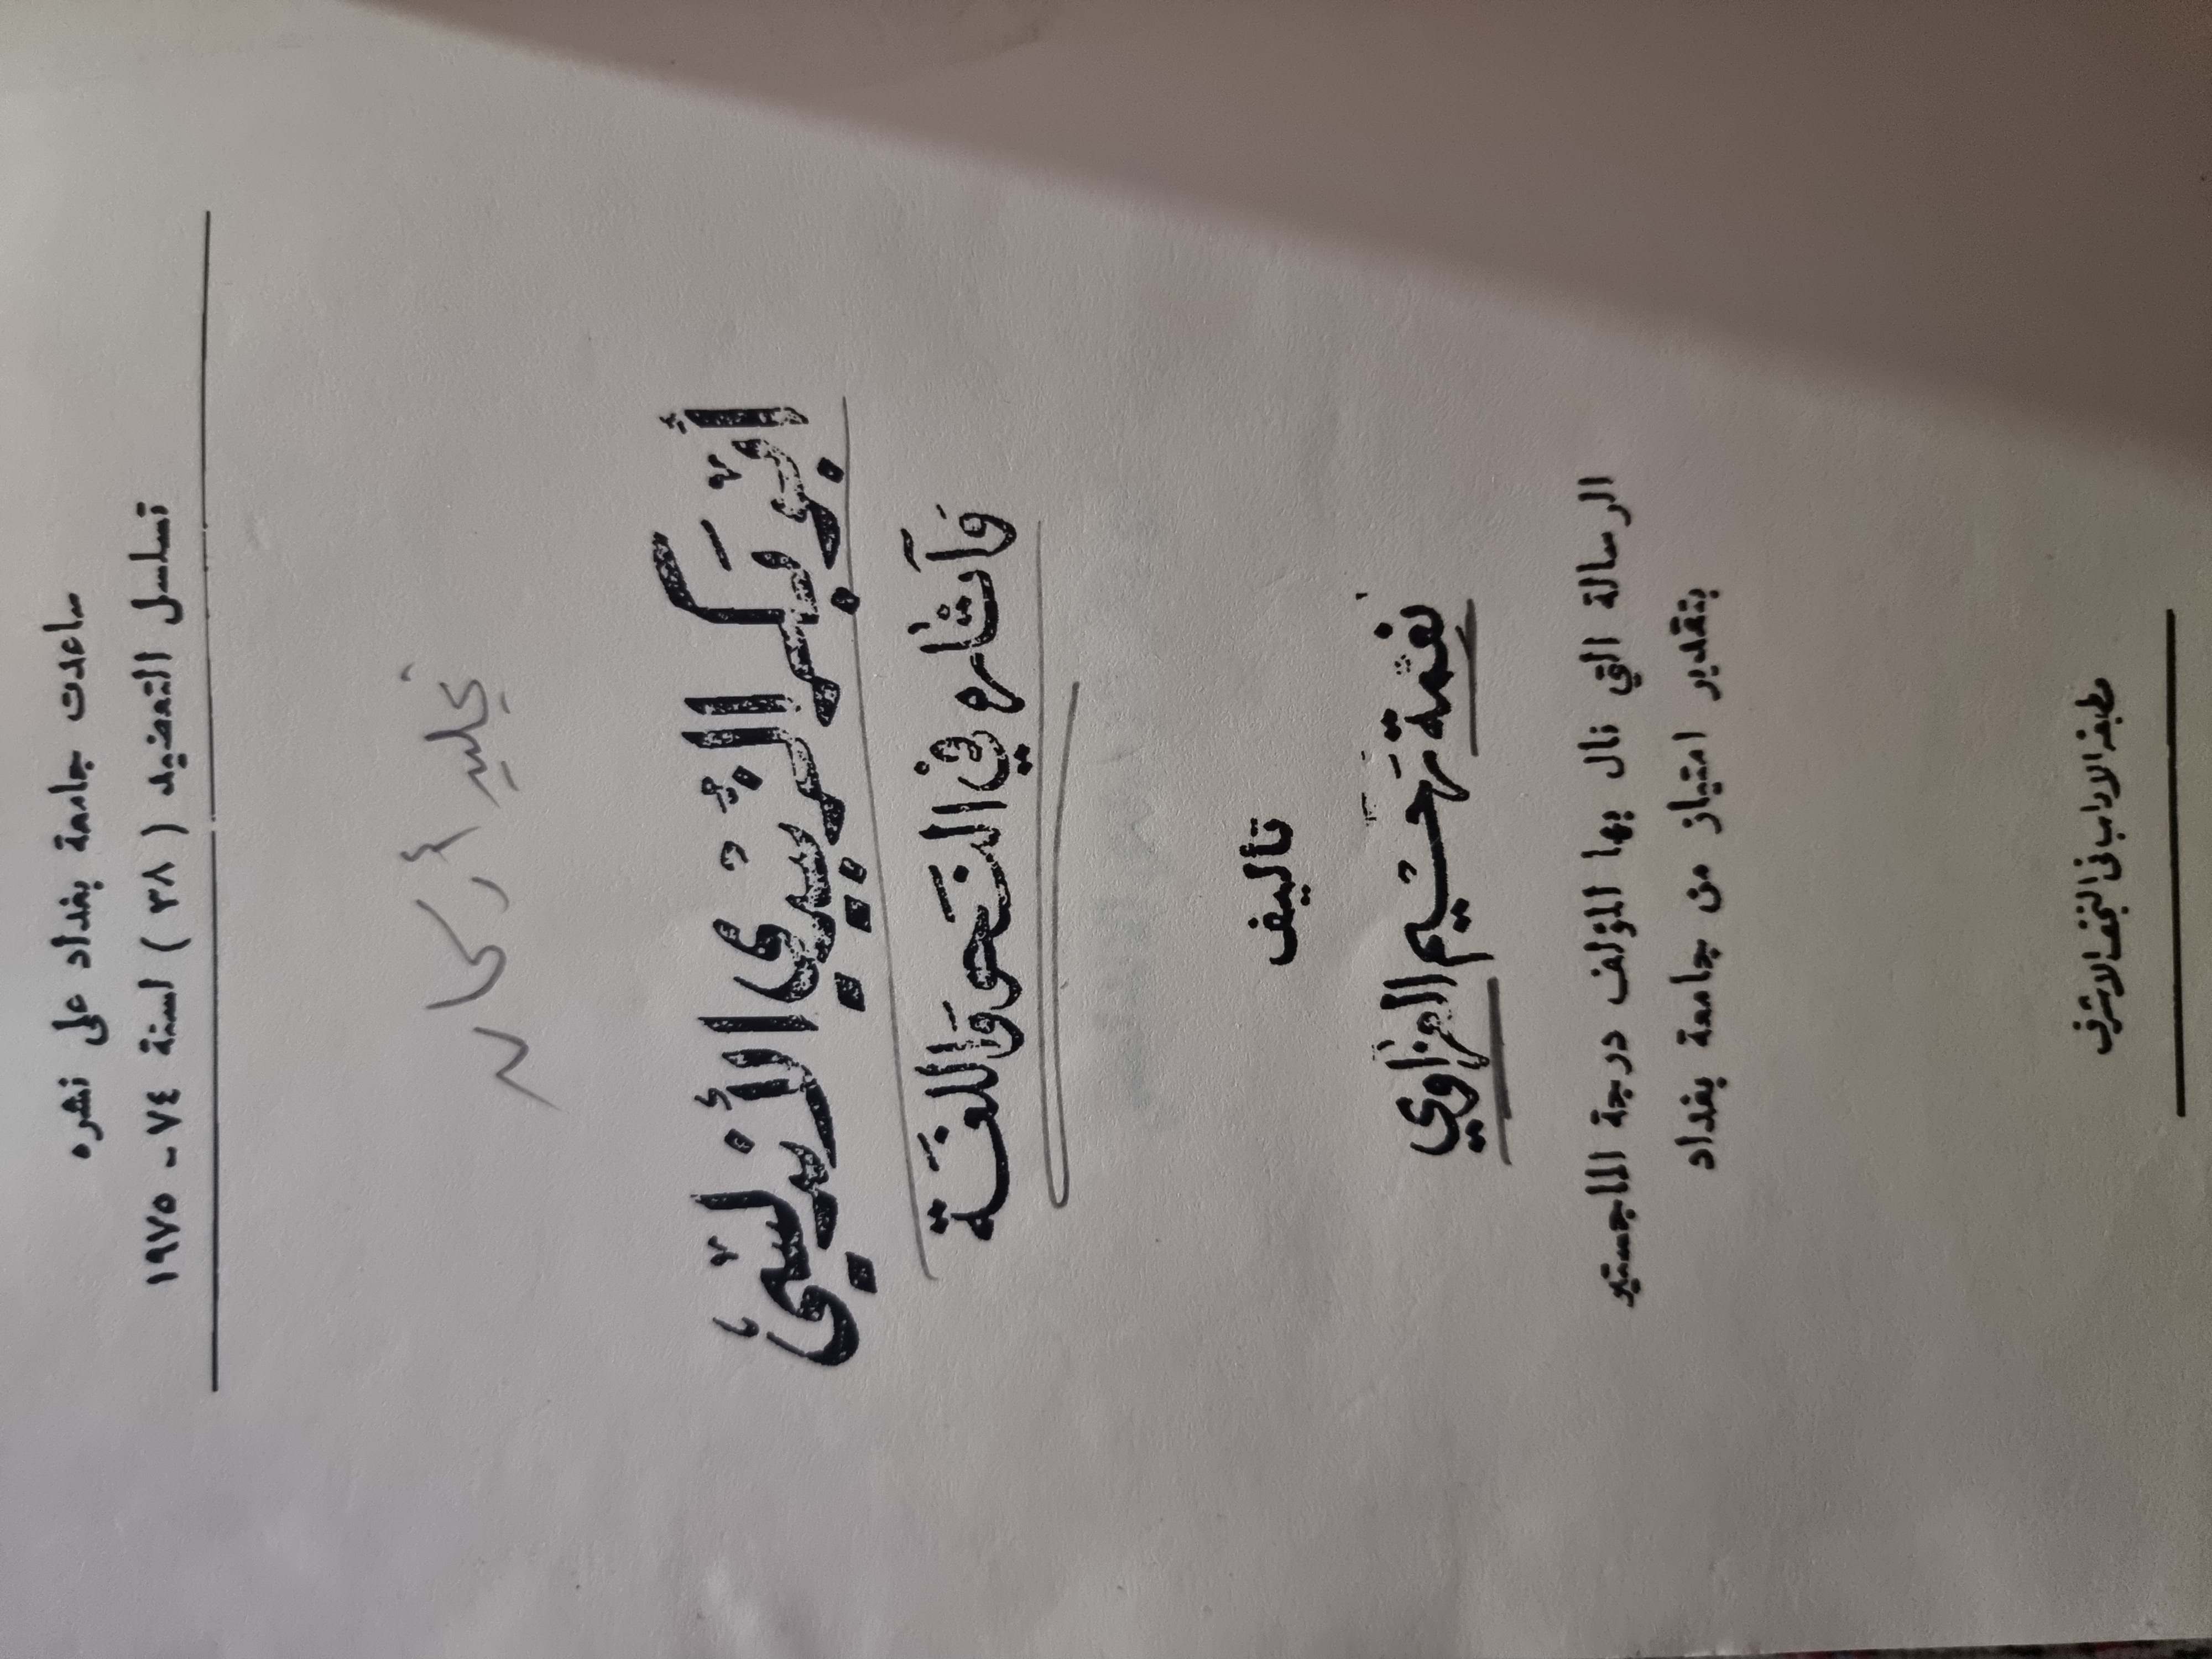 ساعدت جامعة بغداد على نشره
تسلسل التعضيد ( ٣٨ ) لسنة ٧٤ - ١٩٧٥
أَبُو بَكر الزُّبَيْدِي الأَنْدَلُسْيُّ
وَآثاره فِي النَحو وَاللغَة
تأليف
نعمة رَحيْم العزاوي
الرسالة التي نال بها المؤلف درجة الماجستير
بتقدير امتياز من جامعة بغداد
مطبعة الاداب فى النجف الاشرف